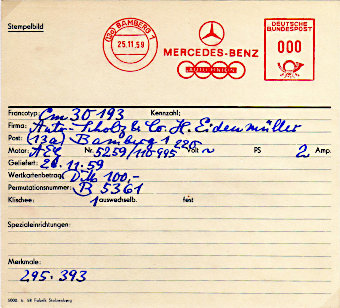 Stempelbild
(13a) BAMBERG 1
25.11.59
MERCEDES-BENZ
AUTO UNION
DEUTSCHE
BUNDESPOST
000
Francotyp: Cm 30 193 Kennzahl:
Firma: Auto-Scholz & Co. H. Eidenmüller
Post: (13a) Bamberg 1
Motor: AEG Nr. 5259/110995 Volt 220 ~ PS 2 Amp.
Geliefert: 26.11.59
Wertkartenbetrag: DM 100,-
Permutationsnummer: B 5361
Klischee: 1 auswechselb. fest
Spezialeinrichtungen:
Merkmale:
295.393
5000 6. 58 Fabrik Stolzenberg